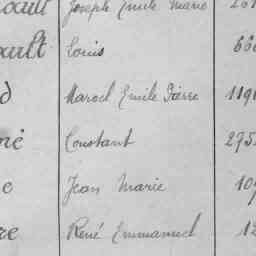 Joseph Emile Marie
ault Louis 660
d Marcel Emile Pierre 119
né Constant 275
e Jean Marie 10
re René Emmanuel 12